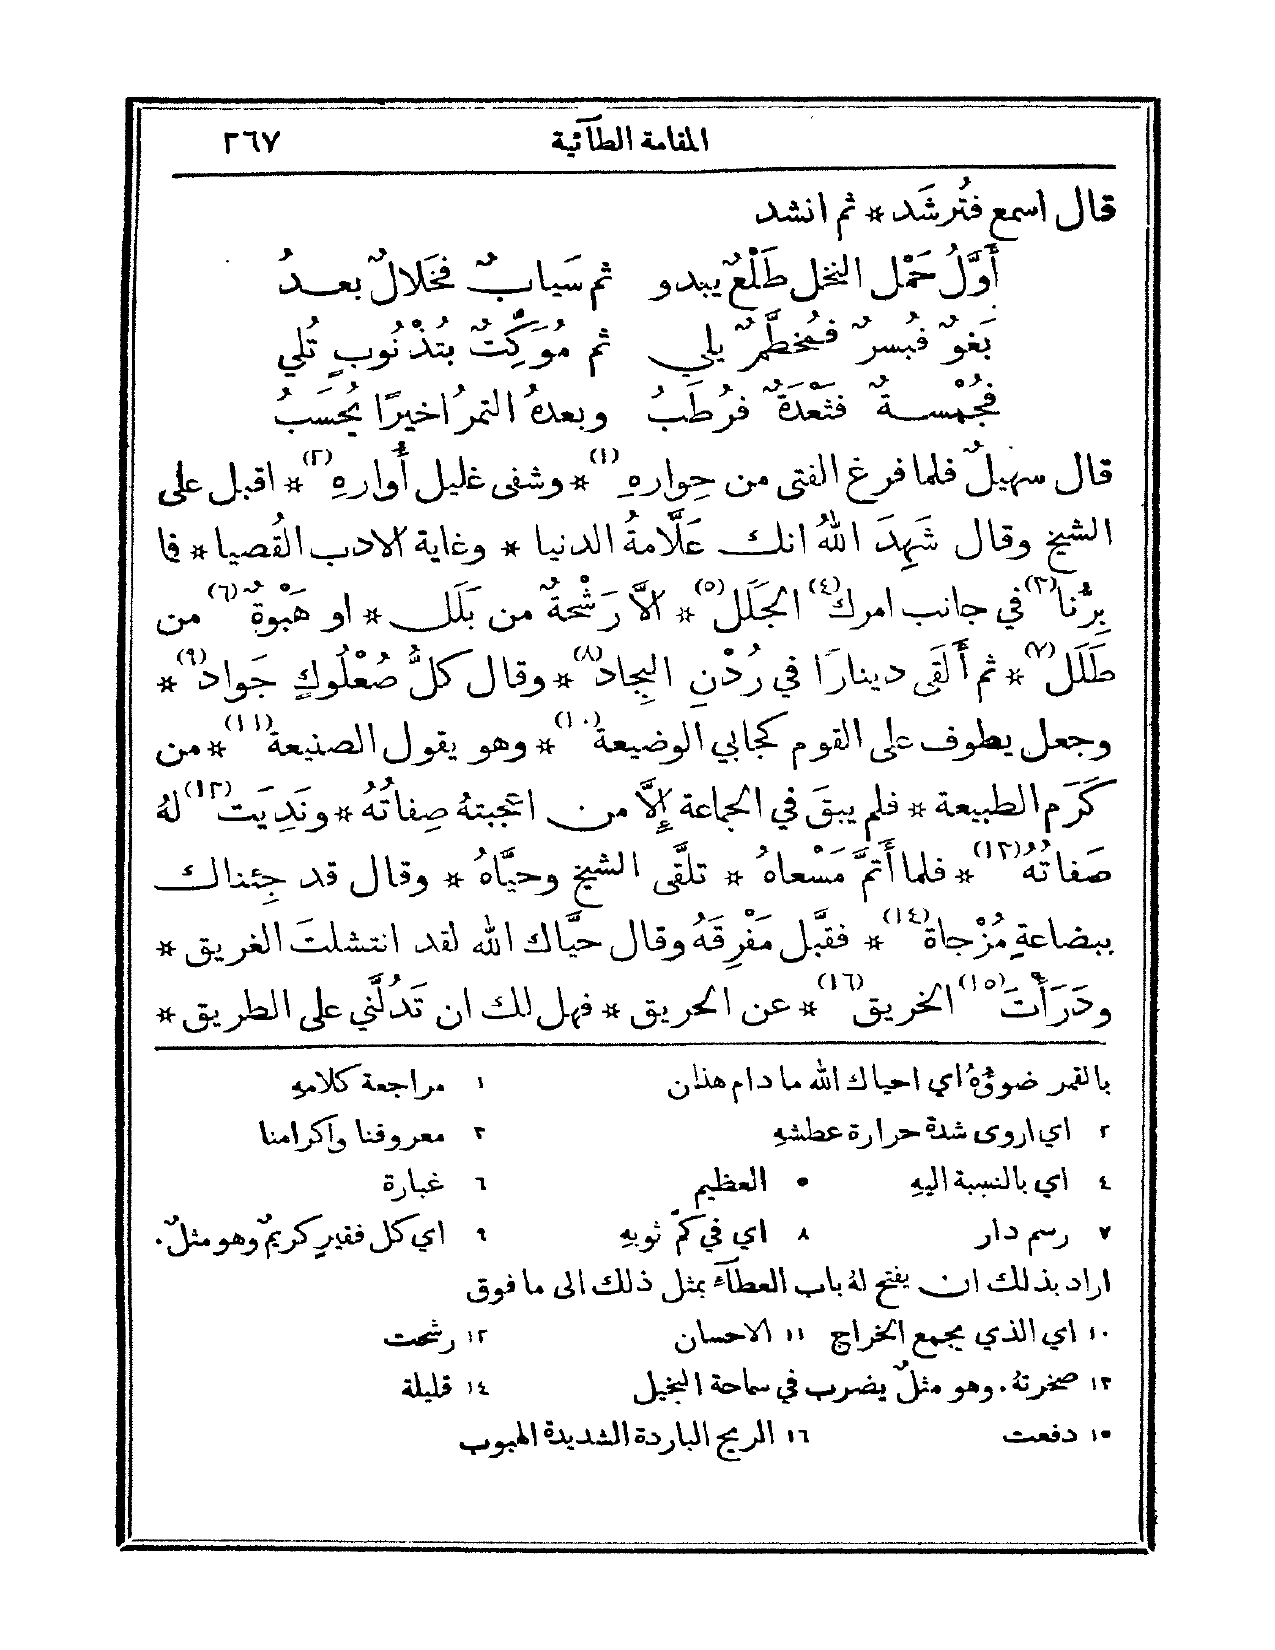 المقامة الطآئية ٢٦٧
قال اسمع فتُرشَد * ثم انشد
أَوَّلُ حَمْل النخل طَلْعٌ يبدو ثم سَيابٌ فخَلالٌ بعدُ
بَغوٌ فبُسرٌ فمُخطَّمٌ يلي ثم مُوَكِّتٌ بتُذْنُوبٍ تُلي
فجُمْسةٌ فثَعْدَةٌ فرُطَبُ وبعدهُ التمرُ اخيرًا يُحْسَبُ
قال سهيلٌ فلما فرغ الفتى من حِوارهِ (١) * وشفى غليل أُوارهِ (٢) * اقبل على
الشيخ وقال شَهِدَ اللهُ انك عَلَّامةُ الدنيا * وغاية الادب القُصيا * فما
بِرُّنا (٣) في جانب امرك (٤) الجَلَل (٥) * الاَّ رَشْحةٌ من بَلَل * او هَبْوةٌ (٦) من
طَلَل (٧) * ثم أَلقَى دينارًا في رُدْنِ البِجاد (٨) * وقال كلُّ صُعْلُوكٍ جَواد (٩) *
وجعل يطوف على القوم كجابي الوضيعة (١٠) * وهو يقول الصنيعة (١١) * من
كَرَم الطبيعة * فلم يبقَ في الجماعة إِلاَّ من اعجبتهُ صِفاتُهُ * ونَدِيَت (١٢) لهُ
صَفاتُهُ (١٣) * فلما أَتمَّ مَسْعاهُ * تلقَّى الشيخ وحيَّاهُ * وقال قد جِئناك
ببضاعةٍ مُزْجاة (١٤) * فقبَّل مَفْرِقَهُ وقال حيَّاك الله لقد انتشلتَ الغريق *
ودَرَأْتَ (١٥) الخريق (١٦) * عن الحريق * فهل لك ان تَدُلَّني على الطريق *
بالقمر ضوؤهُ اي احياك الله ما دام هذان ١ مراجعة كلامهِ
٢ اي اروى شدة حرارة عطشهِ ٣ معروفنا واكرامنا
٤ اي بالنسبة اليهِ ٥ العظيم ٦ غبارة
٧ رسم دار ٨ اي في كمّ ثوبهِ ٩ اي كل فقيرٍ كريمٌ وهو مثلٌ.
اراد بذلك ان يفتح لهُ باب العطآء بمثل ذلك الى ما فوق
١٠ اي الذي يجمع الخراج ١١ الاحسان ١٢ رشحت
١٣ صخرتهُ. وهو مثلٌ يضرب في سماحة البخيل ١٤ قليلة
١٥ دفعت ١٦ الريح الباردة الشديدة الهبوب